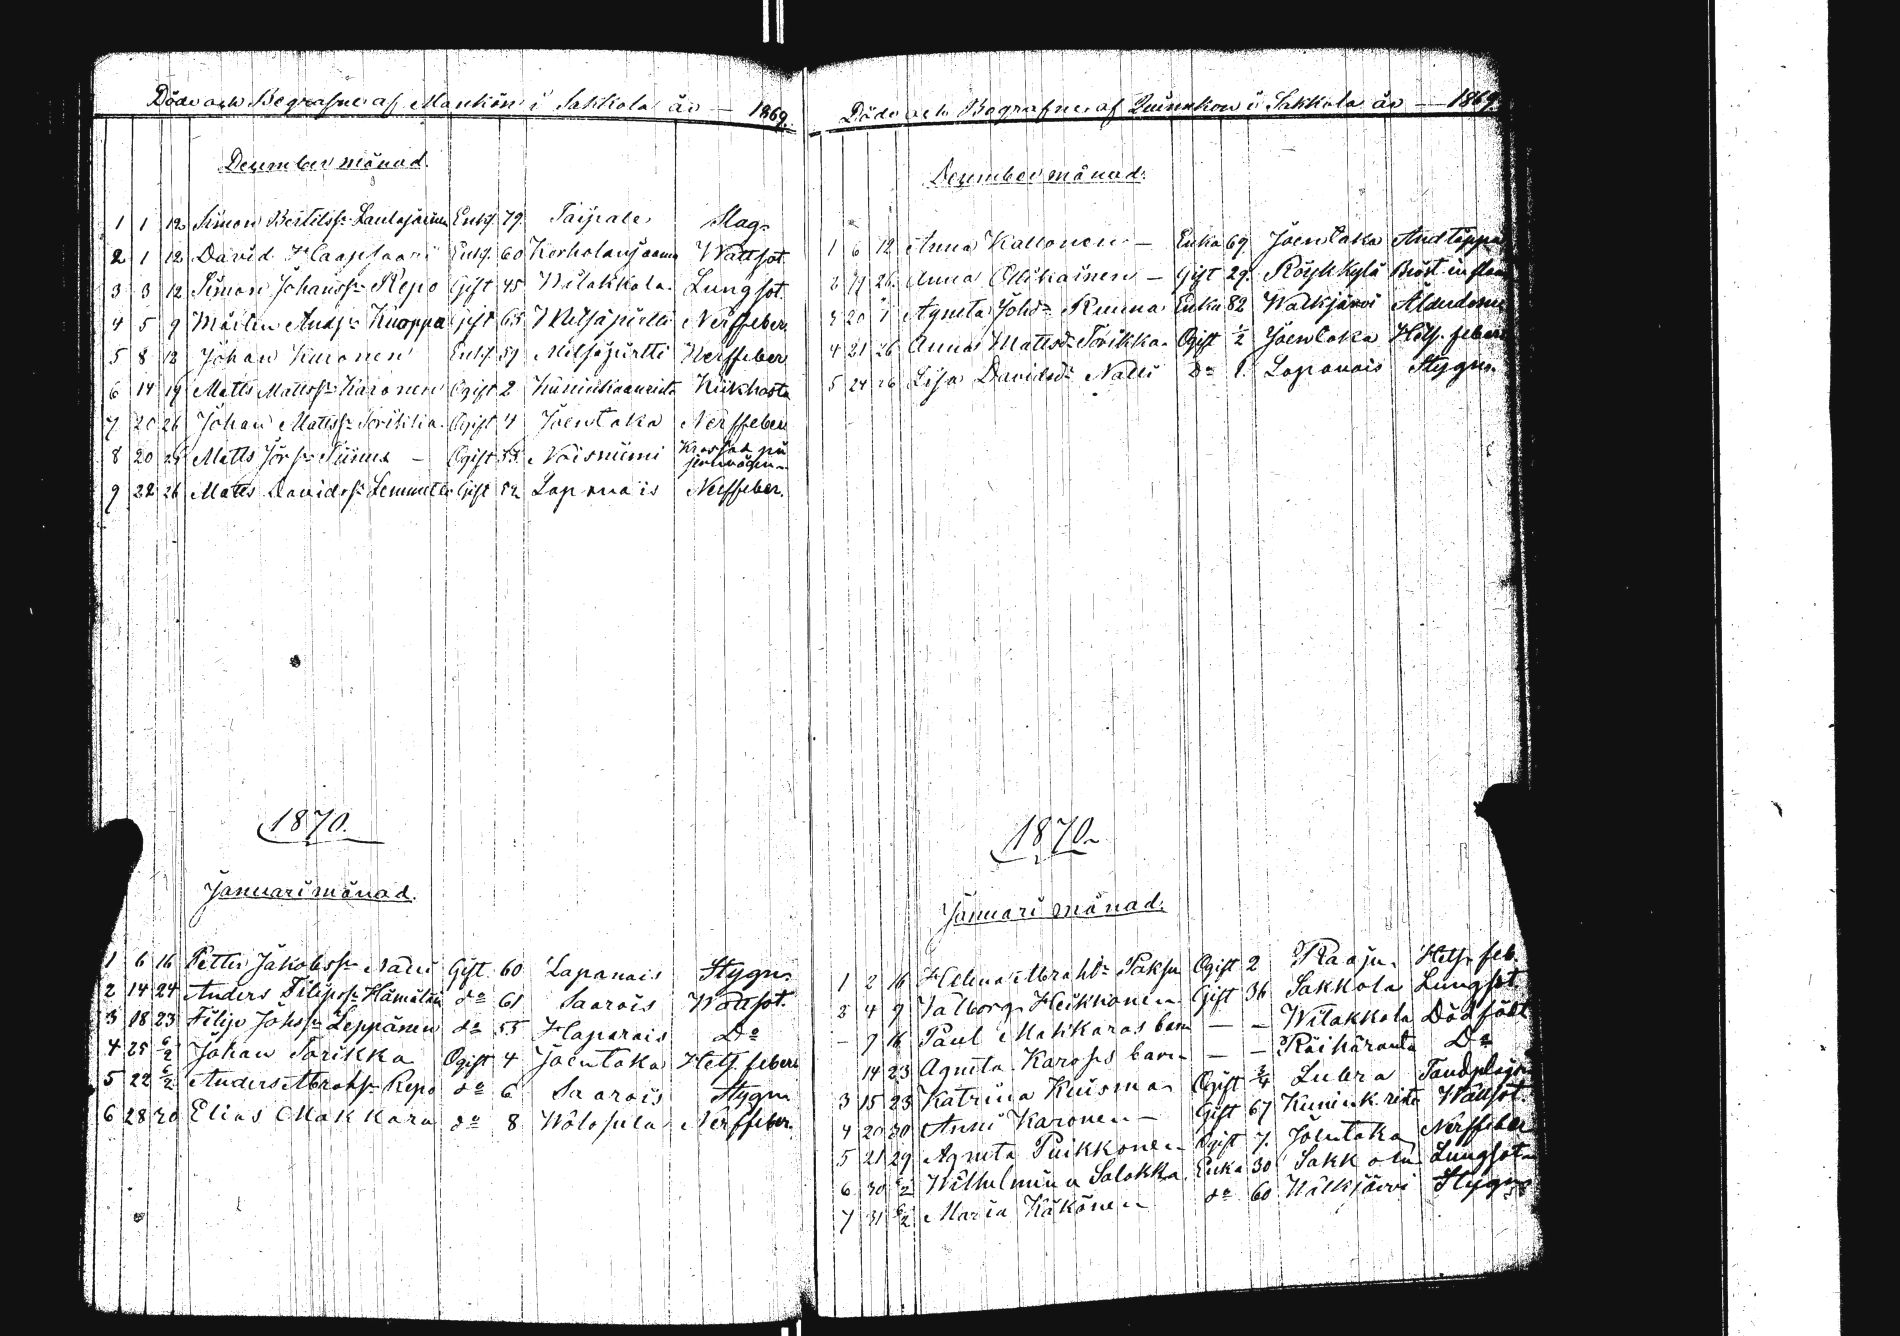 Döde och Begrafne af Mankön i Sakkola år — 1869.
December månad.
1 1 12 Simon Bertilss: Enkl. 79. Taipale Slag.
2 1 12 David Haapsaari Enkl. 60 Korholanjaama Wattsot
3 3 12 Simon Johanss: Repo Gift 45 Wilakkala Lungsot.
4 5 9 Mårten Ands: Kuoppa Gift 65 Metsäpirtti Nerffeber
5 8 12 Johan Kuronen Enkl. 59 Metsäpirtti Nerffeber
6 14 19 Matts Mattss: Karonen Ogift 2 Kikhosta
7 20 26 Johan Mattss: Torikka Ogift 4 Joentaka Nerffeber
8 20 Matts Jörs: — Ogift Noisniemi Krossad på
jernvägen
9 22 26 Matts Davidss: Gift 52 Lapanais Nerffeber.
1870.
Januari månad.
1 6 16 Petter Jakobss: Gift 60 Lapanais Stygn
2 14 24 Anders Filipss: Hämäläin do 61 Saarois Wattsot.
3 18 23 Filip Johss: Leppänen do 55 Haparais Do
4 25 6/2 Johan Torikka Ogift 4 Joentaka Hets. feber
5 22 6/2 Anders Abrahs: Repo do 6 Saarois Stygn
6 28 30 Elias Makkara do 8 Wolosula Nerffeber.
Döde och Begrafne af Quinnkön i Sakkola år — 1869.
December månad.
1 6 12 Anna Kallonen — Enka 69. Joentaka Andtäppa
2 19 26. Anna Ollikainen — Gift 29. Röykkylä Bröst inflam
3 20 Agneta Johsd: Ruuna Enka 82 Walkjärvi Ålderdom
4 21 26 Anna Mattsd: Torikka Ogift 1/2 Joentaka Hets. feber
5 24 26 Lisa Davidsd: do Lapanais Stygn.
1870.
Januari månad.
1 2 16 Helena Abrahd: Paksu Ogift 2 Raaju Hets. feb.
2 4 9 Valborg Heikkonen Gift 36 Sakkola Lungsot
— 9 16 Paul Matikaras barn — — Wilakkala Dödfödt
14 23 Agneta Karosis barn — — Räihäranta Do
3 15 23 Katrina Kuisma Ogift 3/4 Lubra
4 20 30 Anni Karonen — Gift 67 Kunink. Wattsot.
5 21 29 Agneta Puikkonen Ogift 7. Joentaka Nerffeber
6 30 6/2 Wilhelmina Salakka Enka 30 Sakkola Lungsot
7 31 6/2 Maria Käkönen do 60 Walkjärvi Stygn